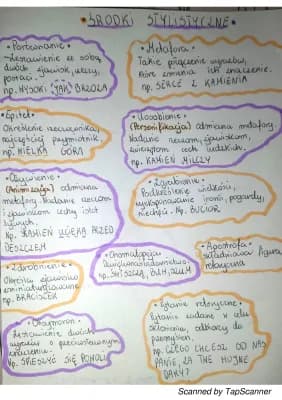 • ŚRODKI STYLISTYCZNE •
• Porównanie -
zestawienie ze sobą
dwóch zjawisk, rzeczy,
postaci.
np. WYSOKI JAK BRZOZA
• Metafora -
Takie połączenie wyrazów,
które zmienia ich znaczenie.
np. SERCE Z KAMIENIA
• Epitet -
Określenie rzeczownika,
najczęściej przymiotnik.
np. WIELKA GÓRA
• Uosobienie -
(Personifikacja) odmiana metafory.
Nadanie rzeczom, zjawiskom,
zwierzętom cech ludzkich.
np. KAMIEŃ MILCZY
• Ożywienie -
(Animizacja) odmiana
metafory. Nadanie rzeczom
i zjawiskom cechy istot
żywych.
Np. KAMIEŃ UCIEKA PRZED
DESZCZEM
• Zgrubienie -
Podkreślenie wielkości,
ironii, pogardy,
niechęci. Np. BUCIOR
• Onomatopeja -
Dźwiękonaśladownictwo.
np. ŚWISZCZĄ, BUH, SZUM
• Apostrofa -
Figura
retoryczna
• Zdrobnienie -
Określa zjawisko
np. BRACISZEK
• Pytanie retoryczne -
Pytanie zadane w celu
skłonienia odbiorcy do
przemyśleń.
np. CZEGO CHCESZ OD NAS
PANIE, ZA TWE HOJNE
DARY?
• Oksymoron -
Zestawienie dwóch
wyrazów o przeciwstawnym
znaczeniu.
Np. ŚPIESZYĆ SIĘ POWOLI
Scanned by TapScanner